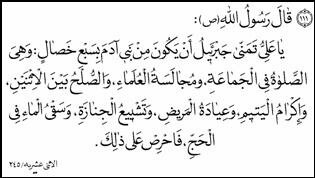 ١١١ قَالَ رَسُولُ اللهِ (ص):
يَا عَلِيُّ تَمَنّٰى جَبْرَئِيلُ أَنْ يَكُونَ مِنْ بَنِي آدَمَ بِسَبْعِ خِصَالٍ: وَهِيَ
الصَّلٰوةُ فِي الْجَمَاعَةِ، وَمُجَالَسَةُ الْعُلَمَاءِ، وَالصُّلْحُ بَيْنَ الْاِثْنَيْنِ،
وَإِكْرَامُ الْيَتِيمِ، وَعِيَادَةُ الْمَرِيضِ، وَتَشْيِيعُ الْجِنَازَةِ، وَسَقْيُ الْمَاءِ فِي
الْحَجِّ، فَاحْرِصْ عَلٰى ذٰلِكَ.
الاثنى عشريه/٢٤٥